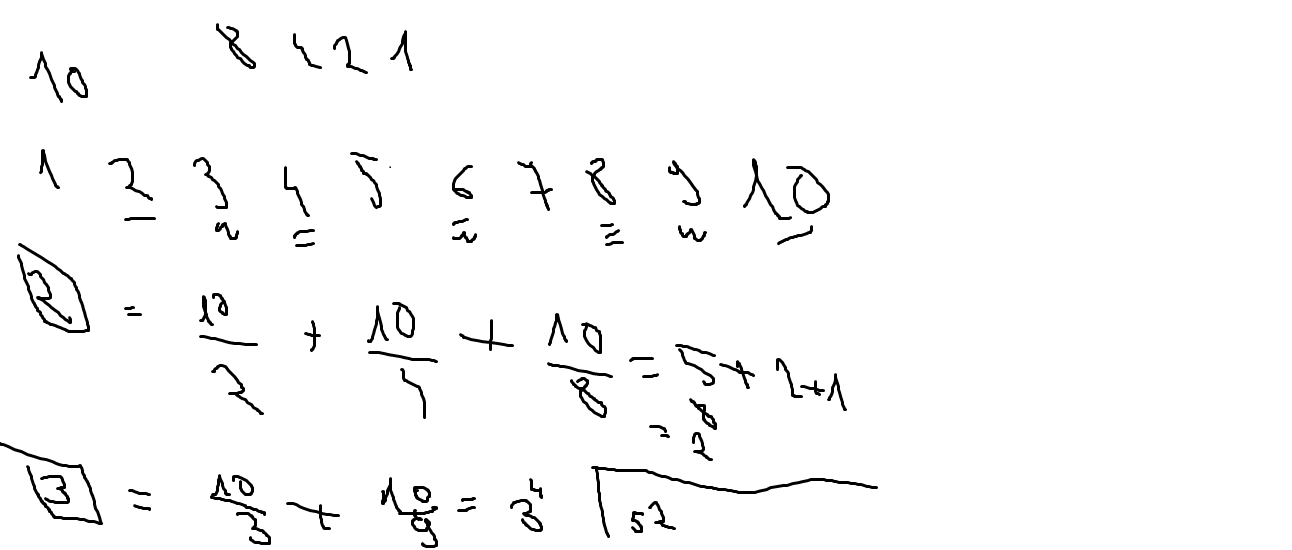 8 4 2 1
10
1 2 3 4 5 6 7 8 9 10
2 = 10/2 + 10/4 + 10/8 = 5 + 2 + 1
= 2^8
3 = 10/3 + 10/9 = 3^4 52